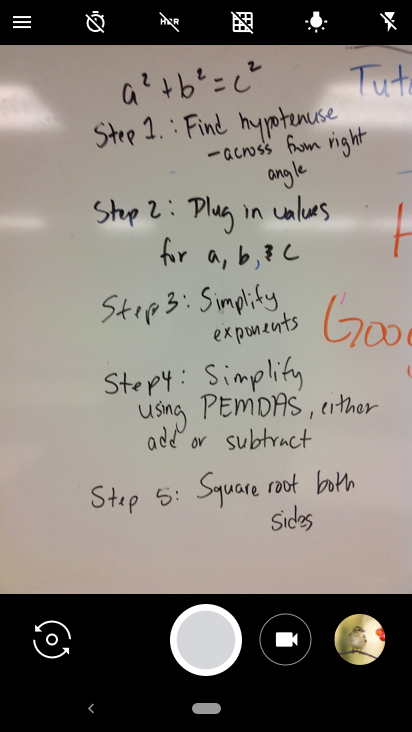 a² + b² = c²
Step 1.: Find hypotenuse
-across from right
angle
Step 2: Plug in values
for a, b, & c
Step 3: Simplify
exponents
Step 4: Simplify
using PEMDAS, either
add or subtract
Step 5: Square root both
sides